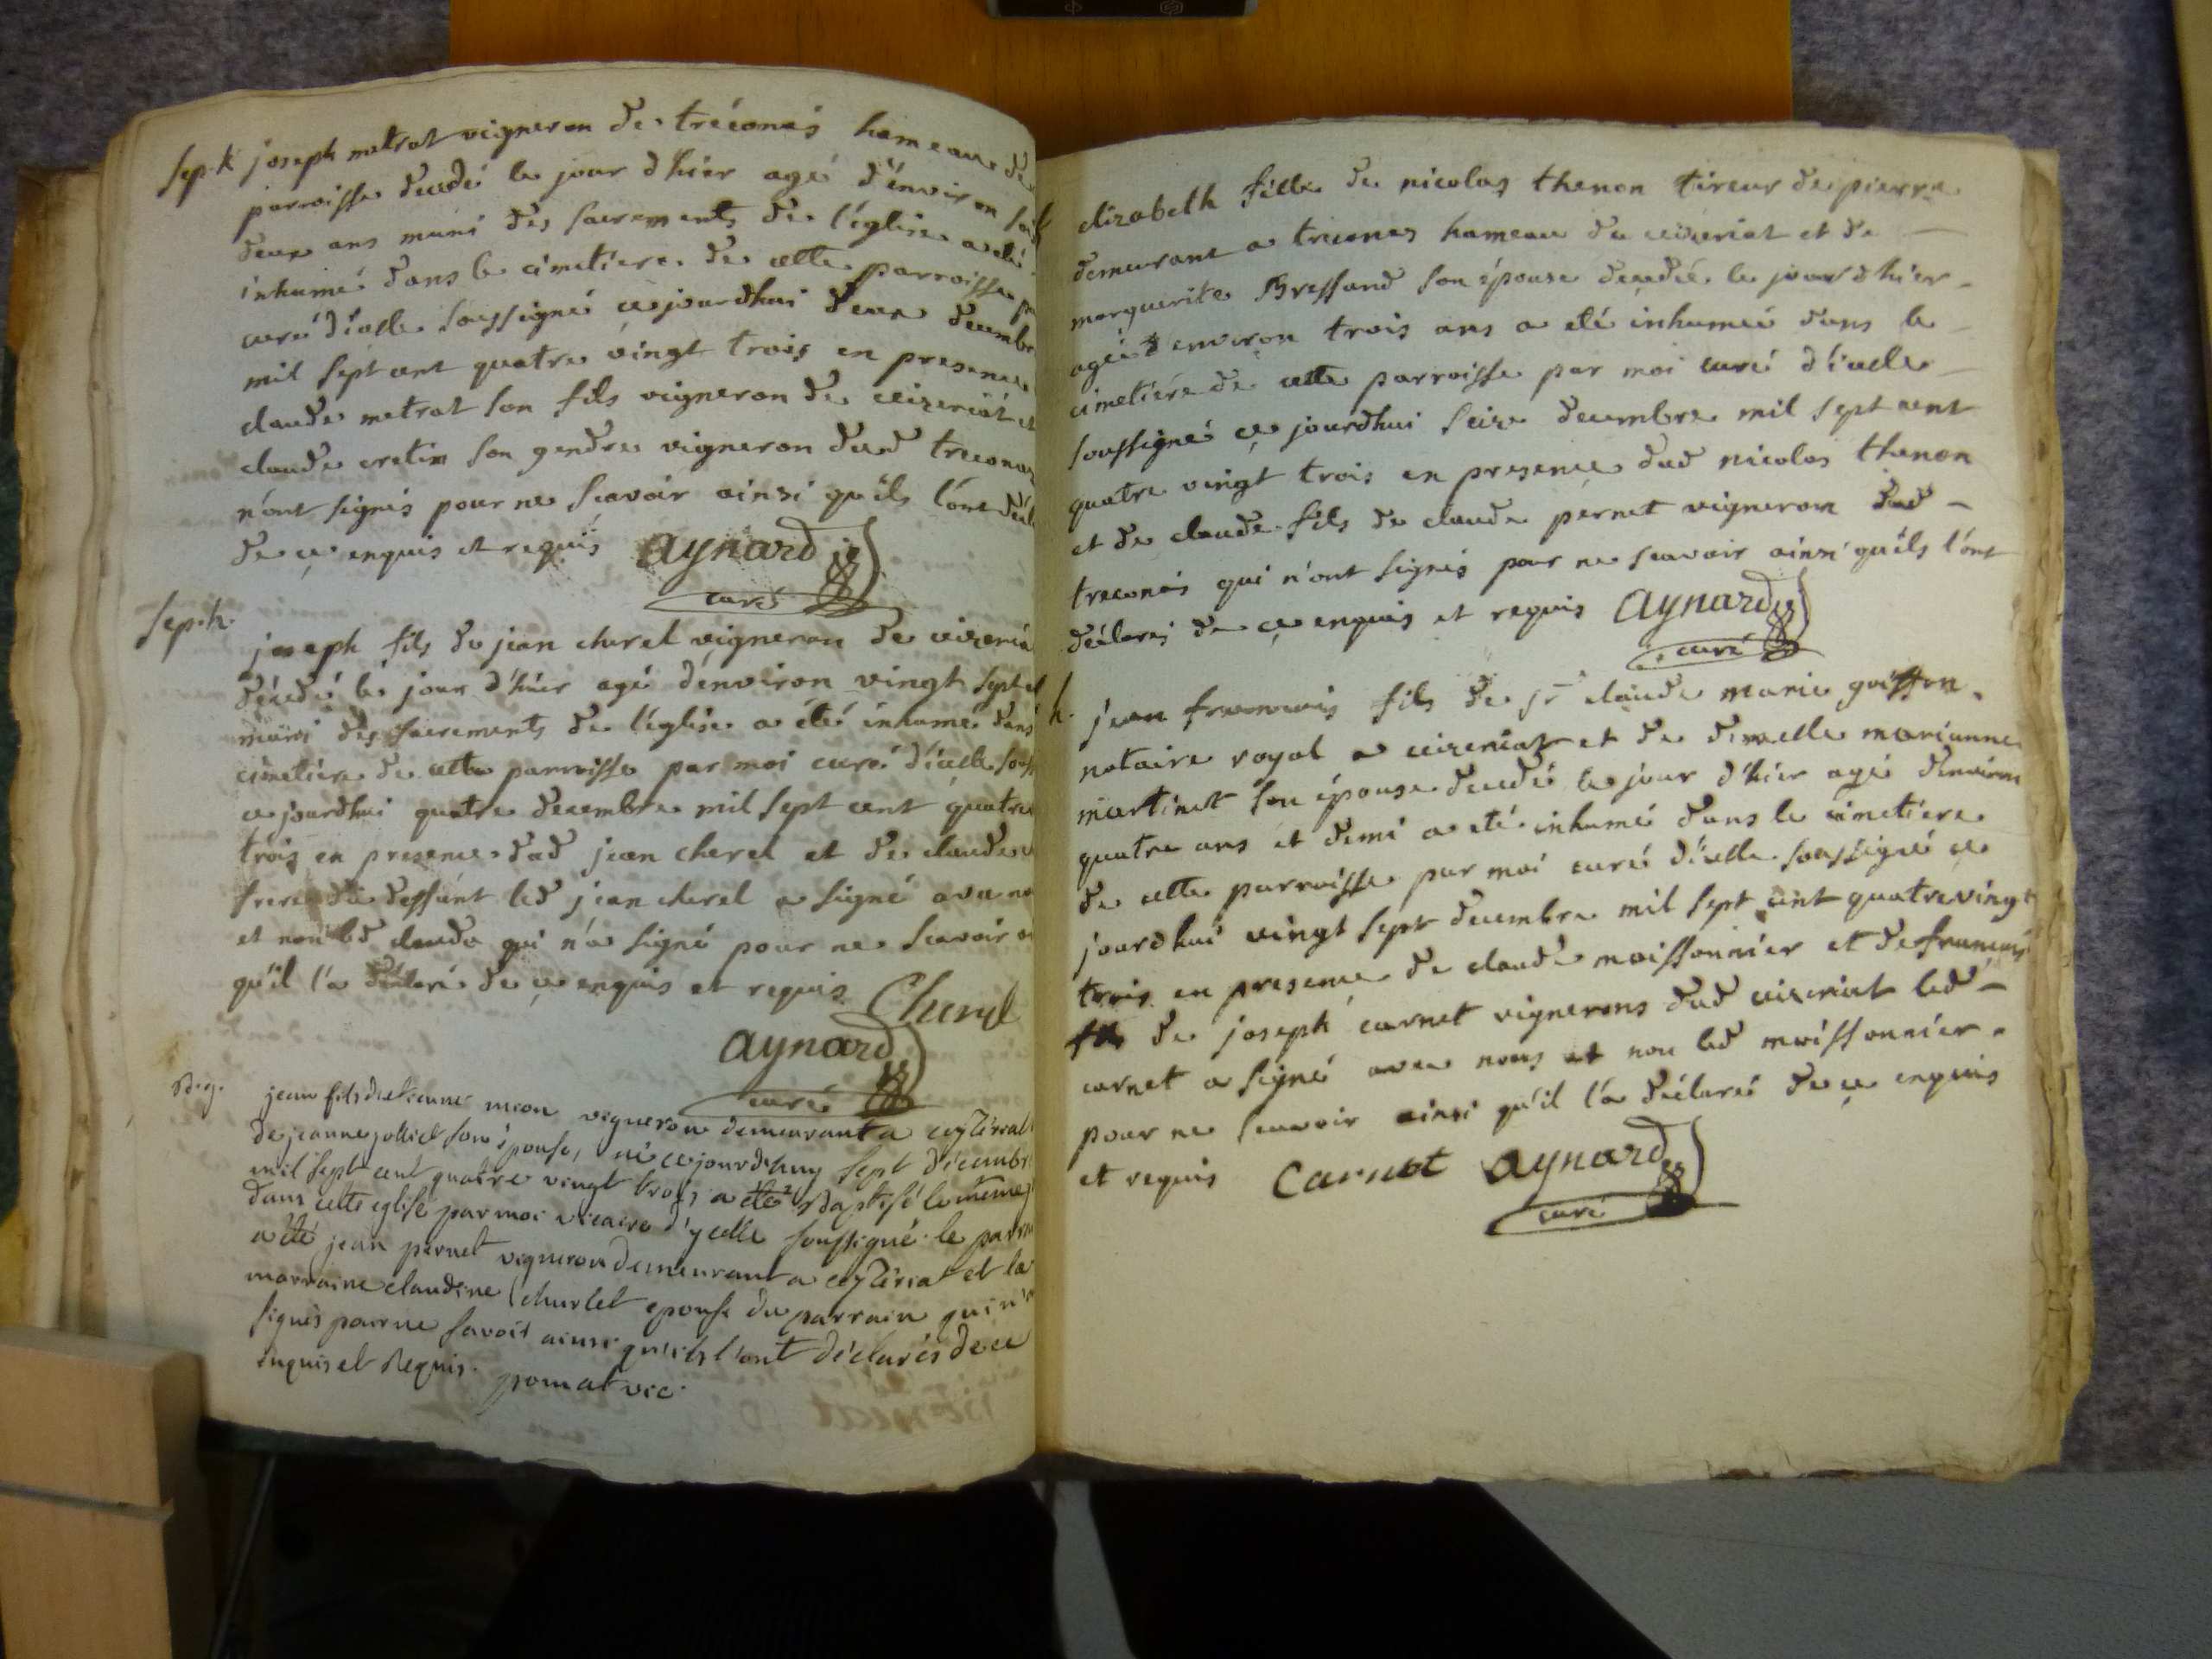 sep.h joseph metrat vigneron de tréconás hameau de
parroisse decedé le jour d'hier agé d'énviron
deux ans muni des sacrements de l'église a eté
inhumé dans le cimetiere de cette parroisse
curé d'icelle soussigné ce jourdhui deux decembre
mil sept cent quatre vingt trois en presence
claude metrat son fils vigneron de ceizeriát et
claude cretin son gendre vigneron dud treconas
n'ont signés pour ne scavoir ainsi qu'ils l'ont
de ce enquis et requis aynard
curé
sep.h.
joseph fils de jean cherel vigneron de
décedé le jour d'hiér agé d'énviron vingt sept
muni des sacrements de l'église a été inhumé dans
cimetiére de cette parroisse par moi curé d'icelle
ce jourdhui quatre decembre mil sept cent quatre
trois en presence dud jean cherel et de claude
frere du deffunt led jean cherel a signé avec
et non led claude qui n'a signé pour ne scavoir
qu'il l'a déclaré de ce enquis et requis Cherel
aynard
curé
jean fils d'etienne vigneron demeurant a ceyzériat
de jeanne son épouse, né cejourdhuy sept décembre
mil sept cent quatre vingt trois a eté Baptisé le meme
dans cette eglise par moi vicaire d'ycelle soussigné. le
a été jean pernet vigneron demeurant a ceyzériat et la
marraine claudine épouse du parrain
signés pour ne savoir ainsi qu'ils l'ont déclarés de ce
enquis et Requis. vic.
elizabeth fille de nicolas thenon tireur de pierre
demeurant a treconas hameau de ceizeriat et de
marguerite Bressand son épouse decedée le jour d'hier
agée d'environ trois ans a eté inhumée dans le
cimetiére de cette parroisse par moi curé d'icelle
soussigné ce jourdhui seize decembre mil sept cent
quatre vingt trois en presence dud nicolas thenon
et de claude fils de claude pernet vigneron dud
treconás qui n'ont signés pour ne scavoir ainsi qu'ils l'ont
déclarés de ce enquis et requis aynard
curé
h. jean francois fils de sr claude marie goiffon
notaire royal a ceizeriat et de demelle marianne
martinet son épouse decedé le jour d'hier agé d'environ
quatre ans et demi a eté inhumé dans le cimetiere
de cette parroisse par moi curé d'icelle soussigné ce
jourdhui vingt sept decembre mil sept cent quatre vingt
trois en presence de claude moissonnier et de francois
fils de joseph carnet vignerons dud ceizeriat led
carnet a signé avec nous et non led moissonniér
pour ne scavoir ainsi qu'il l'a déclaré de ce enquis
et requis Carnet aynard
curé